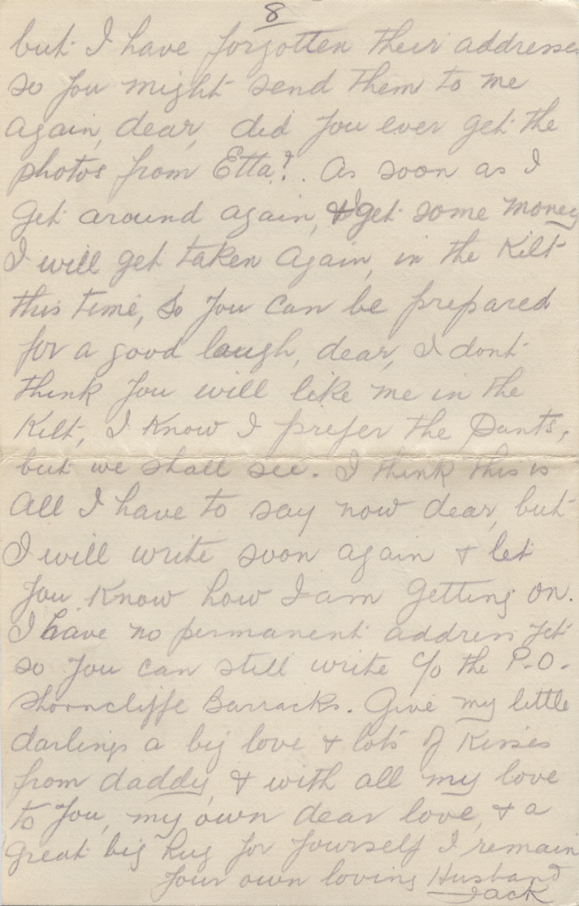 8
but I have forgotten their addresses
so you might send them to me
again, dear, did you ever get the
photos from Etta? As soon as I
get around again, & get some money
I will get taken again, in the Kilt
this time, so you can be prepared
for a good laugh, dear, I dont
think you will like me in the
Kilt, I know I prefer the Pants,
but we shall see. I think this is
all I have to say now dear, but
I will write soon again & let
you know how I am getting on.
I have no permanent address yet
so you can still write c/o the P.O.
Shorncliffe Barracks. Give my little
darlings a big love & lots of Kisses
from daddy, & with all my love
to you, my own dear love, & a
great big hug for yourself I remain
your own loving Husband
Jack